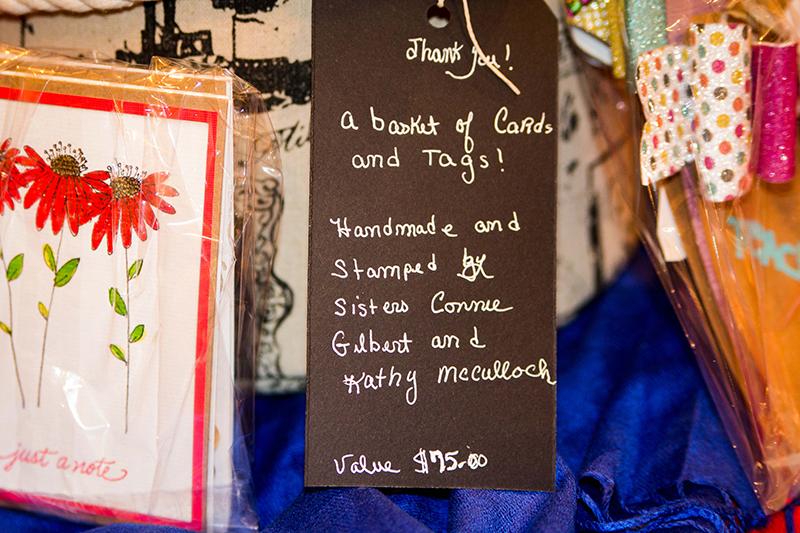 Thank you!
a basket of Cards
and Tags!
Handmade and
Stamped by
Sisters Connie
Gilbert and
Kathy McCulloch
Value $75.00
just a note